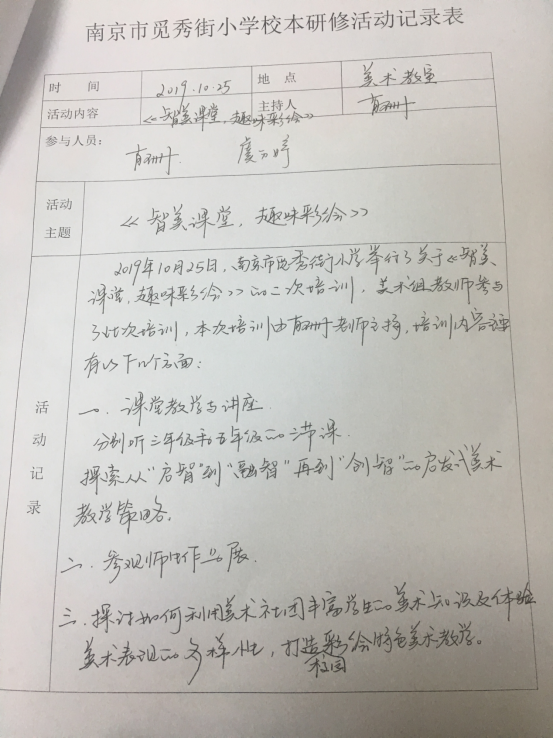 南京市觅秀街小学校本研修活动记录表
时 间 2019.10.25 地 点 美术教室
活动内容 《智美课堂，趣味彩绘》 主持人
参与人员：
活动主题 《智美课堂，趣味彩绘》
活动记录
2019年10月25日，南京市觅秀街小学举行了关于《智美
课堂，趣味彩绘》的二次培训，美术组教师参与
了此次培训，本次培训由老师主持，培训内容主要
有以下几个方面：
一、课堂教学与讲座
分别听三年级和五年级的三节课
探索从“启智”到“融智”再到“创智”的启发式美术
教学策略。
二、参观师生作品展
三、探讨如何利用美术社团丰富学生的美术知识及体验
美术表现的多样性，打造彩绘特色美术教学。
校园